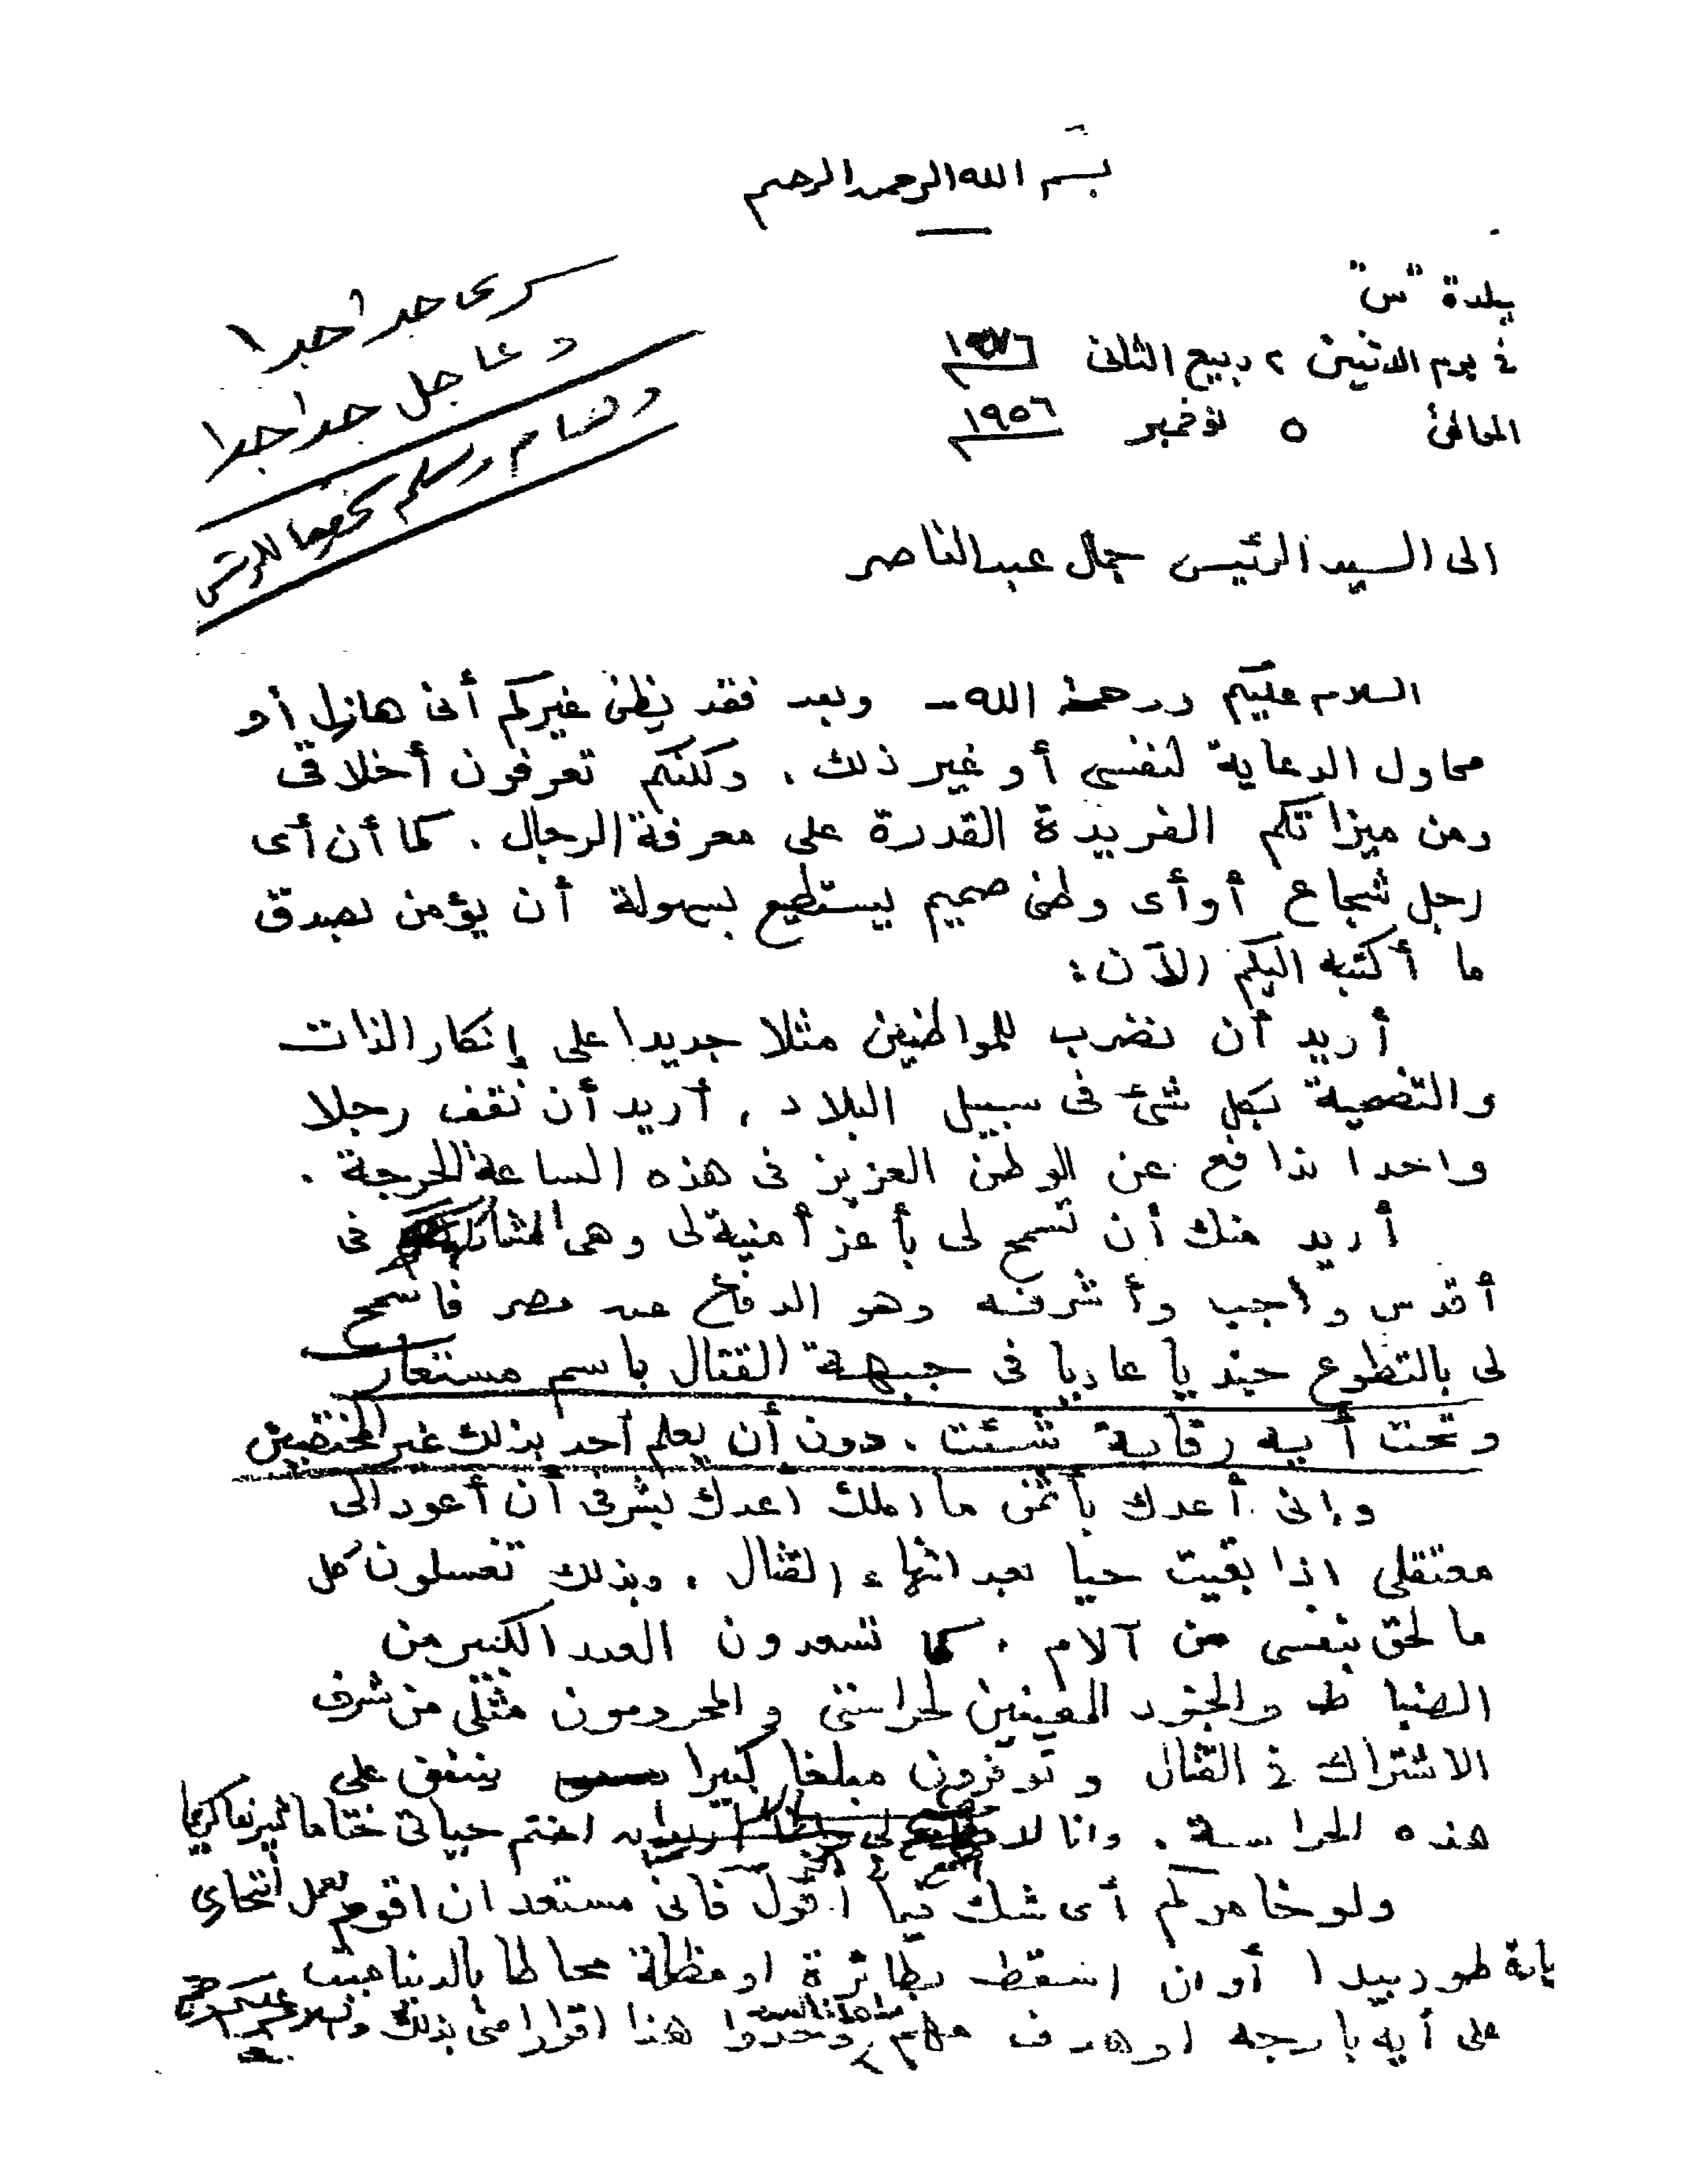 بسم الله الرحمن الرحيم
سرى جدا جدا
وعاجل جدا جدا
وهام ويسلم للرئيس
بلدة "س"
فى يوم الاثنين ٢ ربيع الثانى
الموافق ٥ نوفمبر ١٩٥٦
الى السيد الرئيس جمال عبد الناصر
السلام عليكم ورحمة الله - وبعد فقد يظن غيركم أنى هازل أو
محاول الدعاية لنفسى أو غير ذلك. ولكنكم تعرفون أخلاقى
ومن ميزاتكم الفريدة القدرة على معرفة الرجال. كما أن أى
رجل شجاع أو أى وطنى صميم يستطيع بسهولة أن يؤمن بصدق
ما أكتبه اليكم الآن:
أريد أن نضرب للمواطنين مثلا جديدا على إنكار الذات
والتضحية بكل شئ فى سبيل البلاد، أريد أن نقف رجلا
واحدا ندافع عن الوطن العزيز فى هذه الساعة الحرجة.
أريد منك أن تسمح لى بأعز أمنية لى وهى المشاركة فى
أقدس واجب وأشرفه وهو الدفاع عن مصر فاسمح
لى بالتطوع جنديا عاديا فى جبهة القتال باسم مستعار
وتحت أية رقابة شئت. دون أن يعلم أحد بذلك غير المختصين
وإنى أعدك بأثمن ما املك اعدك بشرفى أن أعود الى
معتقلى اذا بقيت حيا بعد انتهاء القتال. وبذلك تغسلون كل
ما لحق بنفسى من آلام. كما تسعدون العدد الكبير من
الضباط والجنود المعينين لحراستى والمحرومون مثلى من شرف
الاشتراك فى القتال وتوفرون مبلغا كبيرا ينفق على
هذه الحراسة. وانا لا اختم حياتى ختاما شريفا كريما
ولو خامركم أى شك فيما أقول فانى مستعد ان اقوم بعمل انتحارى
بأية طوربيد ا أو ان اسقط بطائرة او مظلة محاطا بالديناميت
على أية بارجه او هدف مهم وخذوا هذا اقرارا منى بذلك والسلام عليكم